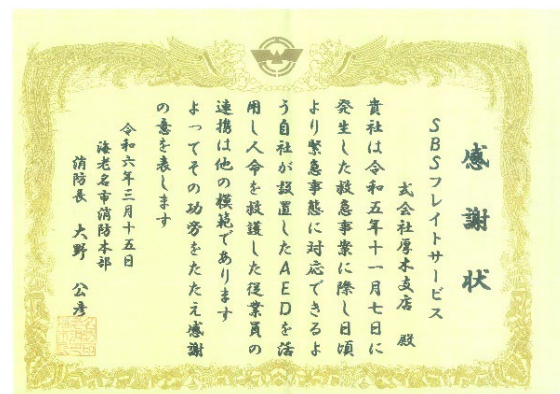 感謝状
SBSフレイトサービス
式会社厚木支店 殿
貴社は令和五年十一月七日に
発生した救急事業に際し日頃
より緊急事態に対応できるよ
う自社が設置したAEDを活
用し人命を救護した従業員の
連携は他の模範であります
よってその功労をたたえ感謝
の意を表します
令和六年三月十五日
海老名市消防本部
消防長 大野 公彦